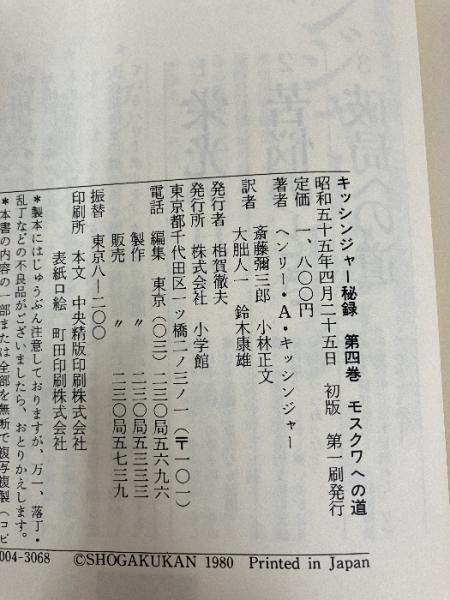 キッシンジャー秘録 第四巻 モスクワへの道
昭和五十五年四月二十五日 初版 第一刷発行
定価 一、八〇〇円
著者 ヘンリー・A・キッシンジャー
訳者 斎藤彌三郎 小林正文
大朏人一 鈴木康雄
発行者 相賀徹夫
発行所 株式会社 小学館
東京都千代田区一ッ橋二ノ三ノ一(〒一〇一)
電話 編集 東京(〇三)二三〇局五六九六
製作 〃 二三〇局五三三三
販売 〃 二三〇局五七三九
振替 東京八―二〇〇
印刷所 本文 中央精版印刷株式会社
表紙口絵 町田印刷株式会社
*製本にはじゅうぶん注意しておりますが、万一、落丁・
乱丁などの不良品がございましたら、おとりかえします。
*本書の内容の一部または全部を無断で複写複製(コピ
004-3068 ©SHOGAKUKAN 1980 Printed in Japan